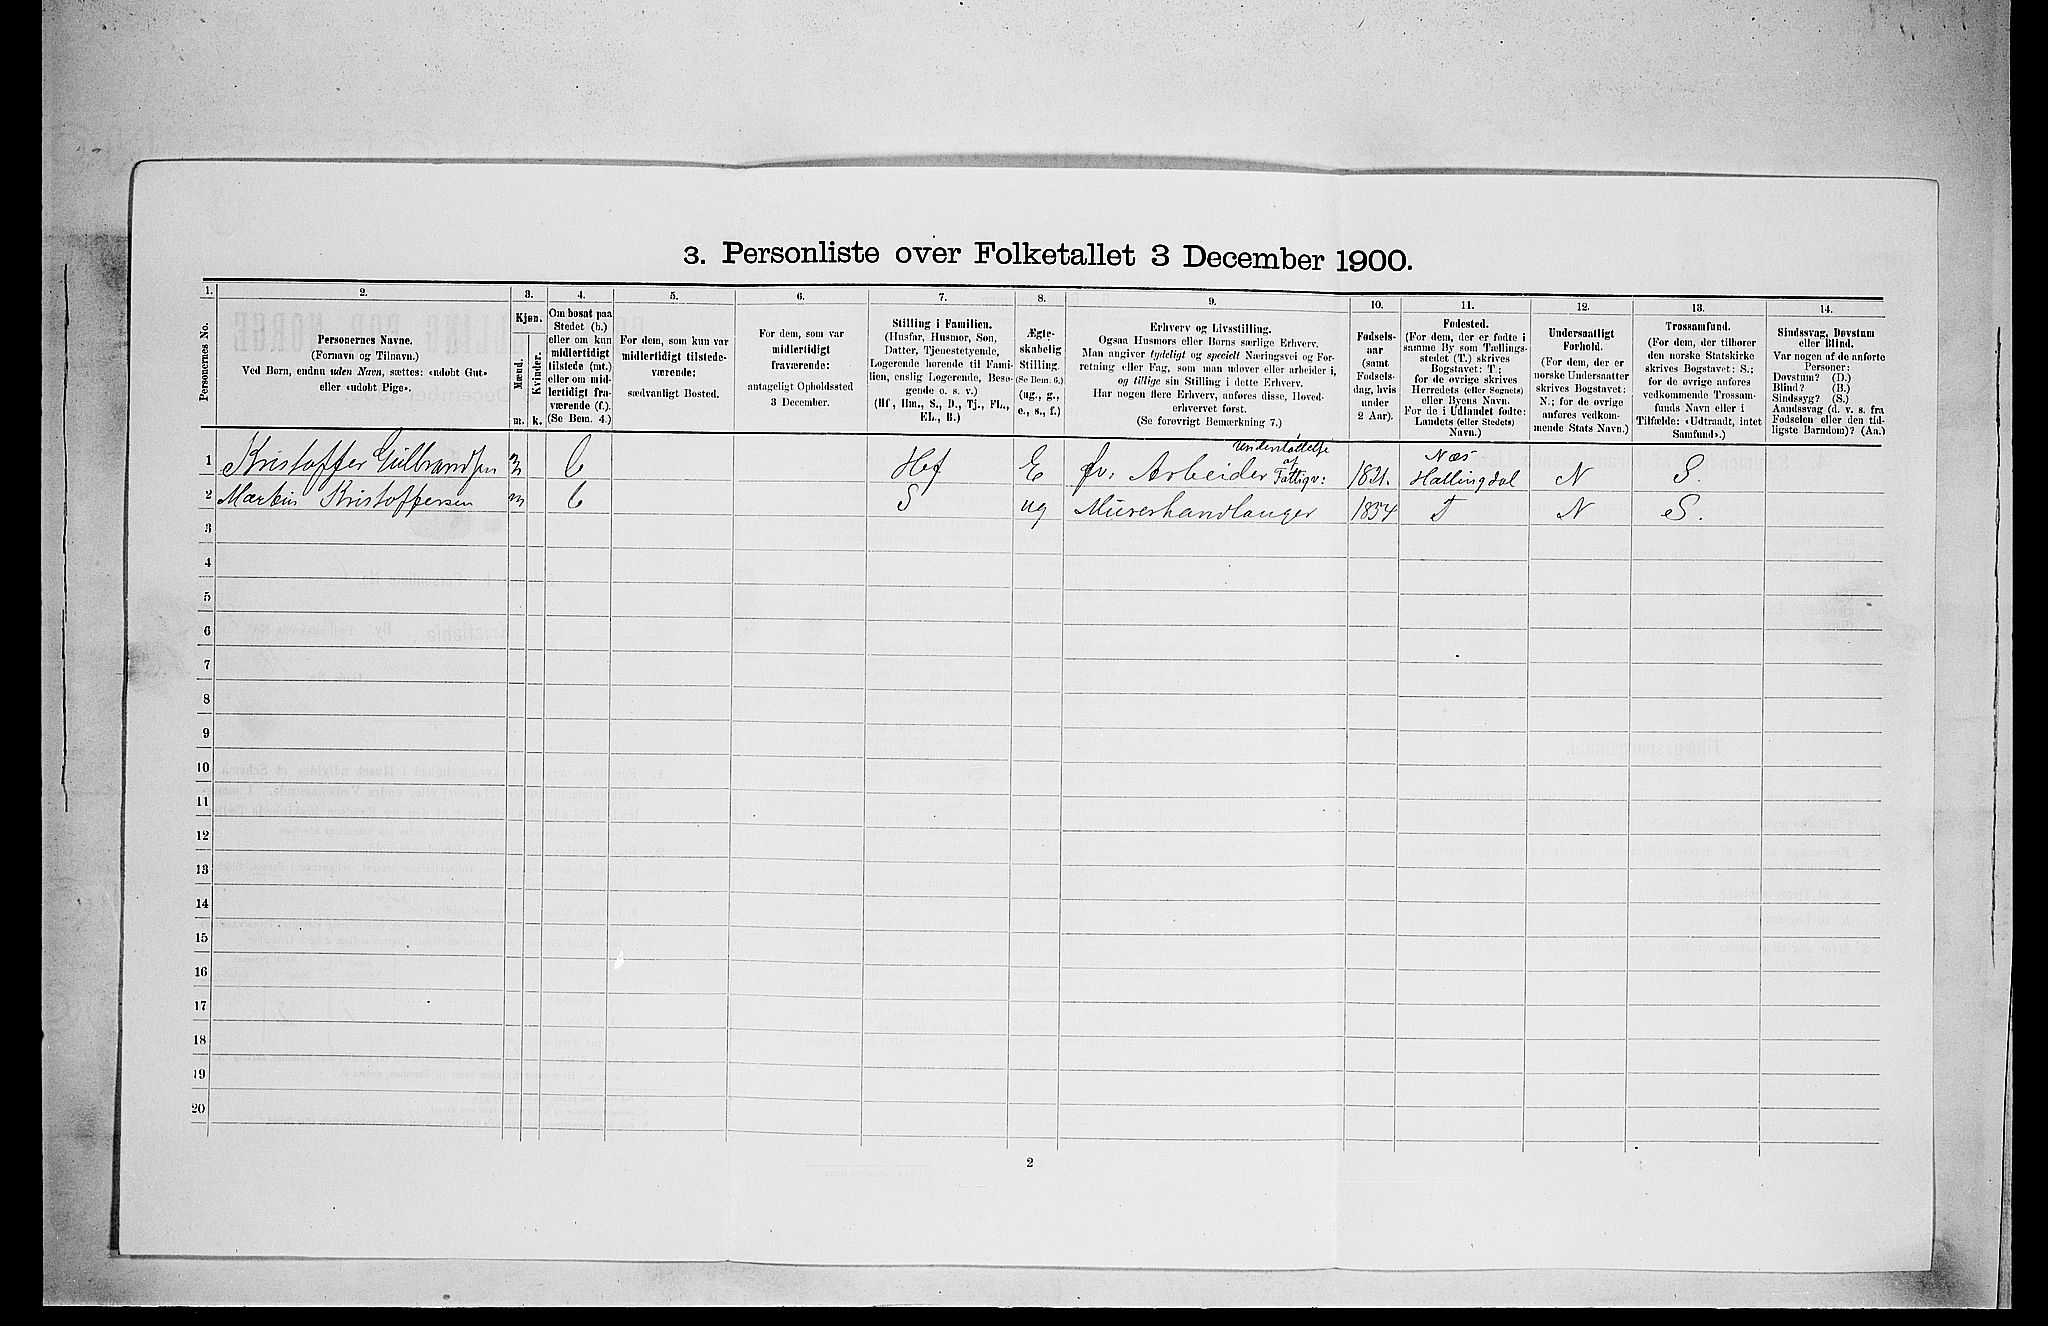 3. Personliste over Folketallet 3 December 1900.
1. 2. 3. 4. 5. 6. 7. 8. 9. 10. 11. 12. 13. 14.
Personernes No.
Personernes Navne.
(Fornavn og Tilnavn.)
Ved Børn, endnu uden Navn, sættes: «udøbt Gut»
eller «udøbt Pige».
Kjøn.
Mænd.
Kvinder.
m. k.
Om bosat paa
Stedet (b.)
eller om kun
midlertidigt
tilstede (mt.)
eller om mid-
lertidigt fra-
værende (f.).
(Se Bem. 4.)
For dem, som kun var
midlertidigt tilstede-
værende:
sædvanligt Bosted.
For dem, som var
midlertidigt
fraværende:
antageligt Opholdssted
3 December.
Stilling i Familien.
(Husfar, Husmor, Søn,
Datter, Tjenestetyende,
Logerende hørende til Fami-
lien, enslig Logerende, Besø-
gende o. s. v.)
(Hf., Hm., S., D., Tj., FL.,
EL., B.)
Ægte-
skabelig
Stilling.
(Se Bem. 6.)
(ug., g.,
e., s., f.)
Erhverv og Livsstilling.
Ogsaa Husmors eller Børns særlige Erhverv.
Man angiver tydeligt og specielt Næringsvei og For-
retning eller Fag, som man udøver eller arbeider i,
og tillige sin Stilling i dette Erhverv.
Har nogen flere Erhverv, anføres disse, Hoved-
erhvervet først.
(Se forøvrigt Bemærkning 7.)
Fødsels-
aar
(samt
Fødsels-
dag, hvis
under
2 Aar).
Fødested.
(For dem, der er fødte i
samme By som Tællings-
stedet (T.) skrives
Bogstavet: T;
for de øvrige skrives
Herredets (eller Sognets)
eller Byens Navn.
For de i Udlandet fødte:
Landets (eller Stedets)
Navn.)
Undersaatligt
Forhold.
(For dem, der er
norske Undersaatter
skrives Bogstavet:
N.; for de øvrige
anføres vedkom-
mende Stats Navn.)
Trossamfund.
(For dem, der tilhører
den norske Statskirke
skrives Bogstavet: S.;
for de øvrige anføres
vedkommende Trossam-
funds Navn eller i
Tilfælde: «Udtraadt, intet
Samfund».)
Sindssvag, Døvstum
eller Blind.
Var nogen af de anførte
Personer:
Døvstum? (D.)
Blind? (B.)
Sindssyg? (S.)
Aandssvag (d. v. s. fra
Fødselen eller den tid-
ligste Barndom)? (Aa.)
1 Kristoffer Gulbrandsen m b Hf E fv: Arbeider Understøttelse af Fattigv: 1821. Næs Hallingdal N S.
2 Martin Kristoffersen m b S ug Murerhandlanger 1854 T N S.
3
4
5
6
7
8
9
10
11
12
13
14
15
16
17
18
19
20
2